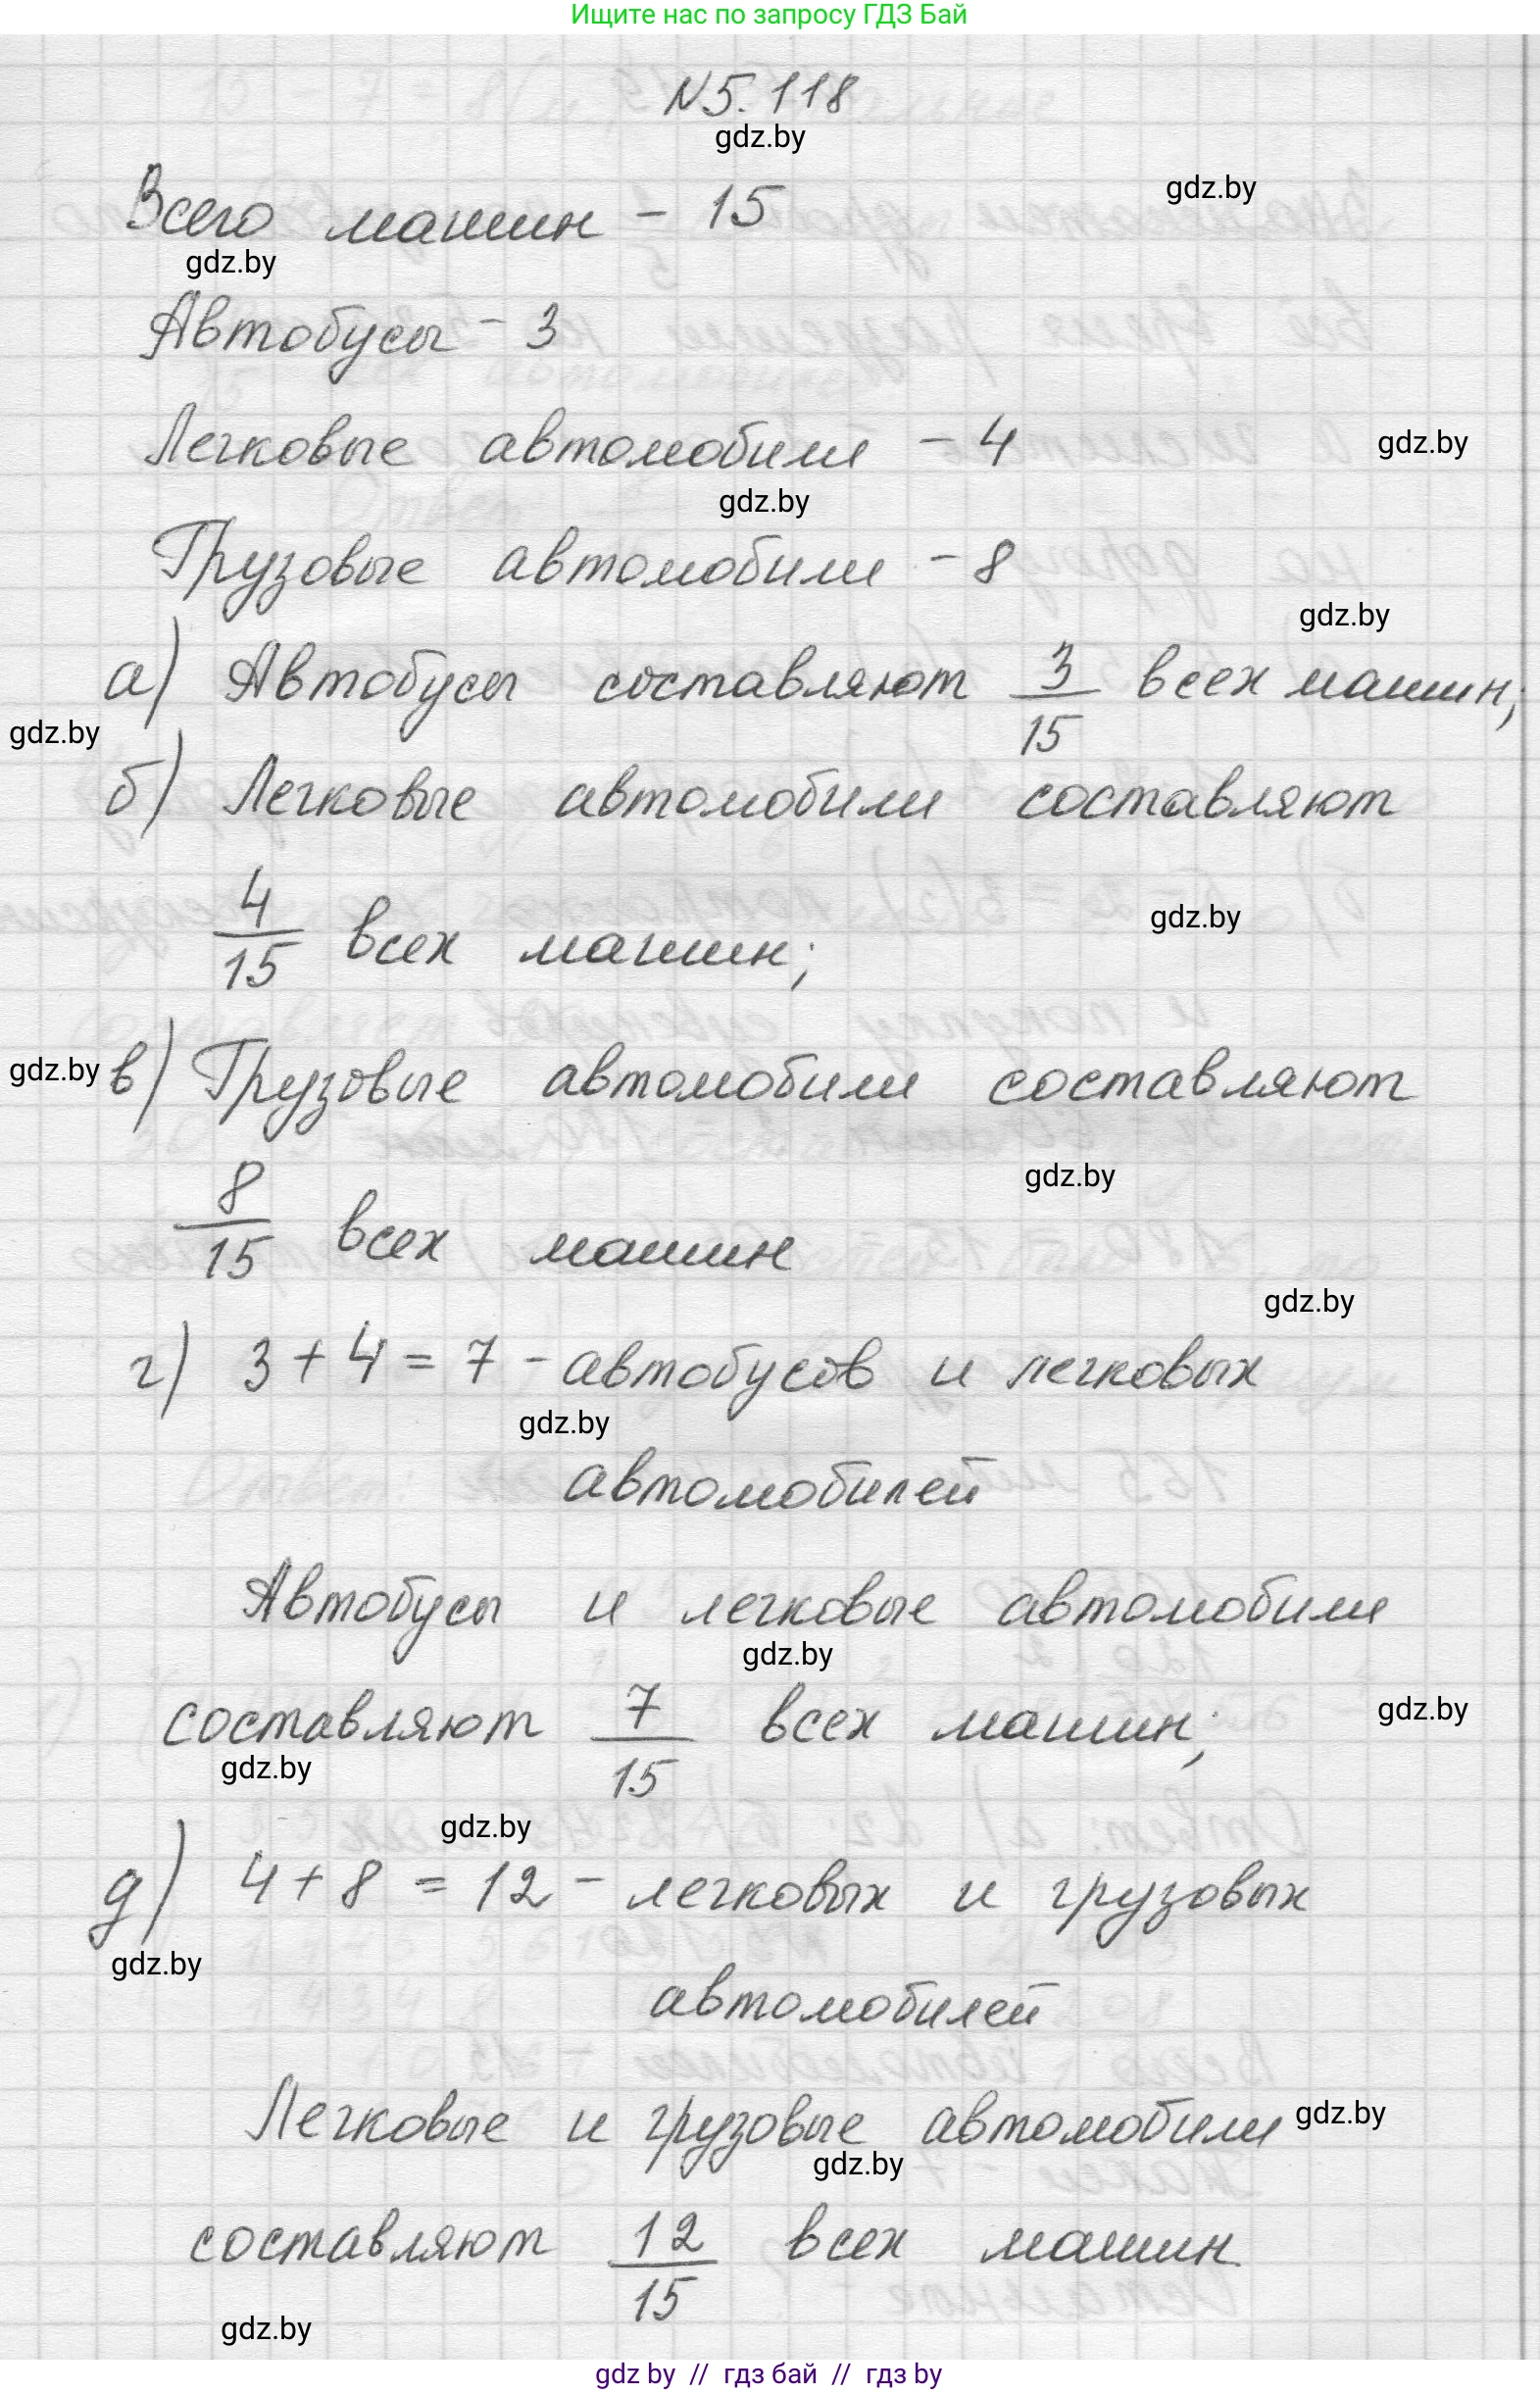 Ищите нас по запросу ГДЗ Бай
N5.118
gdz.by
gdz.by
Всего машин - 15
gdz.by
Автобусы - 3
Легковые автомобили - 4
gdz.by
gdz.by
Грузовые автомобили - 8
gdz.by
а) Автобусы составляют 3/15 всех машин;
gdz.by
б) Легковые автомобили составляют
4/15 всех машин;
gdz.by
gdz.by
в) Грузовые автомобили составляют
gdz.by
8/15 всех машин
gdz.by
г) 3 + 4 = 7 - автобусов и легковых
gdz.by
автомобилей
Автобусы и легковые автомобили
gdz.by
составляют 7/15 всех машин;
gdz.by
gdz.by
gdz.by
д) 4 + 8 = 12 - легковых и грузовых
gdz.by
автомобилей
Легковые и грузовые автомобили
gdz.by
gdz.by
составляют 12/15 всех машин
gdz.by
gdz by // гдз бай // гдз by